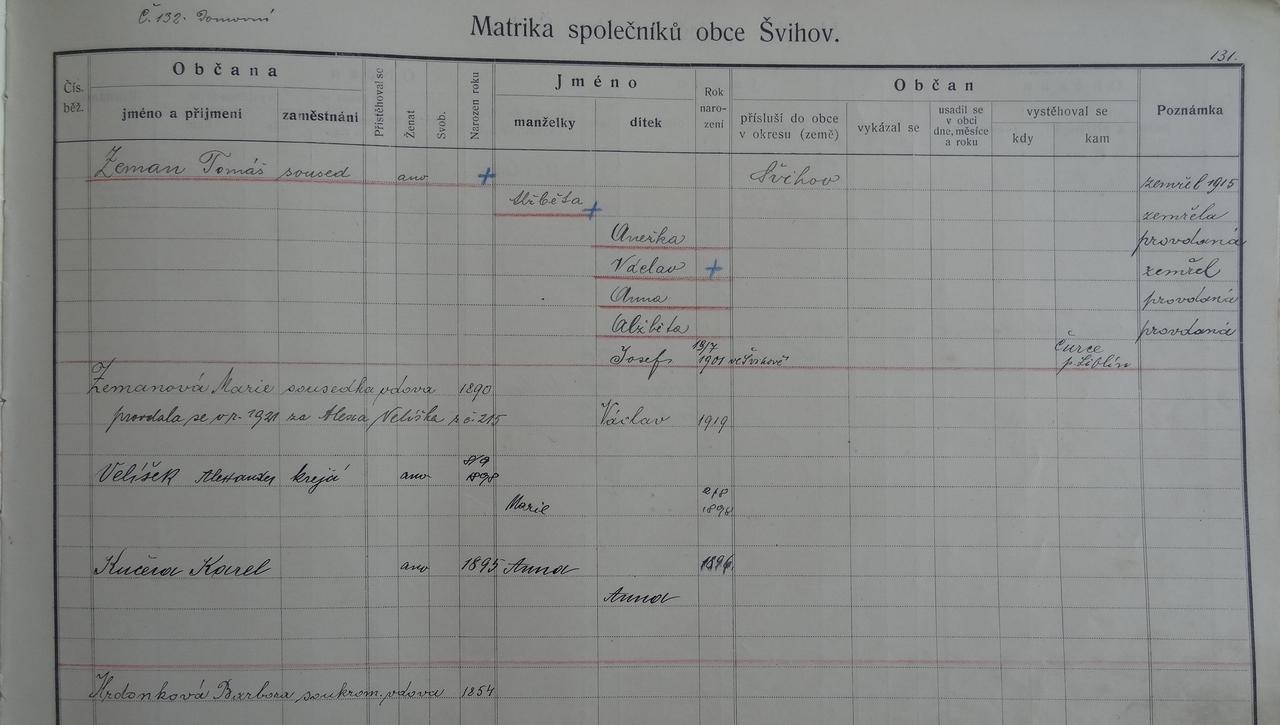 Č. 132. Domovní
Matrika společníků obce Švihov.
131.
Čís. běž.
Občana
jméno a přijmení
zaměstnání
Přistěhoval se
Ženat
Svob.
Narozen roku
Jméno
manželky
dítek
Rok naro- zení
Občan
přísluší do obce v okresu (země)
vykázal se
usadil se v obci dne, měsíce a roku
vystěhoval se
kdy
kam
Poznámka
Zeman Tomáš soused ano + Švihov zemřel 1915
Alžběta + zemřela
Anežka provdaná
Václav + zemřel
Anna provdaná
Alžběta provdaná
Josef 13/7 1901 ve Švihově Čurce p. Liblín
Zemanová Marie sousedka vdova 1890
provdala se v r. 1921 za Alexa Velíška z č. 215 Václav 1919
Velíšek Alexander krejčí ano 1898
Marie 2/8 1898
Kučera Karel ano 1895 Anna 1896
Anna
Hrdonková Barbora soukrom. vdova 1854